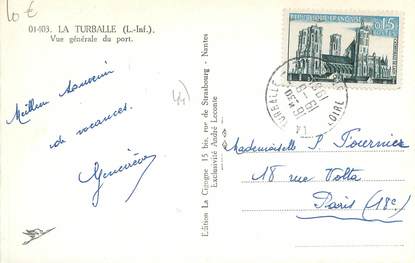 10 €
01403. LA TURBALLE (L.-Inf.).
Vue générale du port.
Meilleur souvenir
de vacances.
Geneviève
44
Edition La Cigogne 15 bis, rue de Strasbourg - Nantes
Exclusivité André Leconte
REPUBLIQUE FRANÇAISE
0,15
POSTES
LA TURBALLE
LOIRE
Mademoiselle P. Tournier
18 rue Volta
Paris (18e)